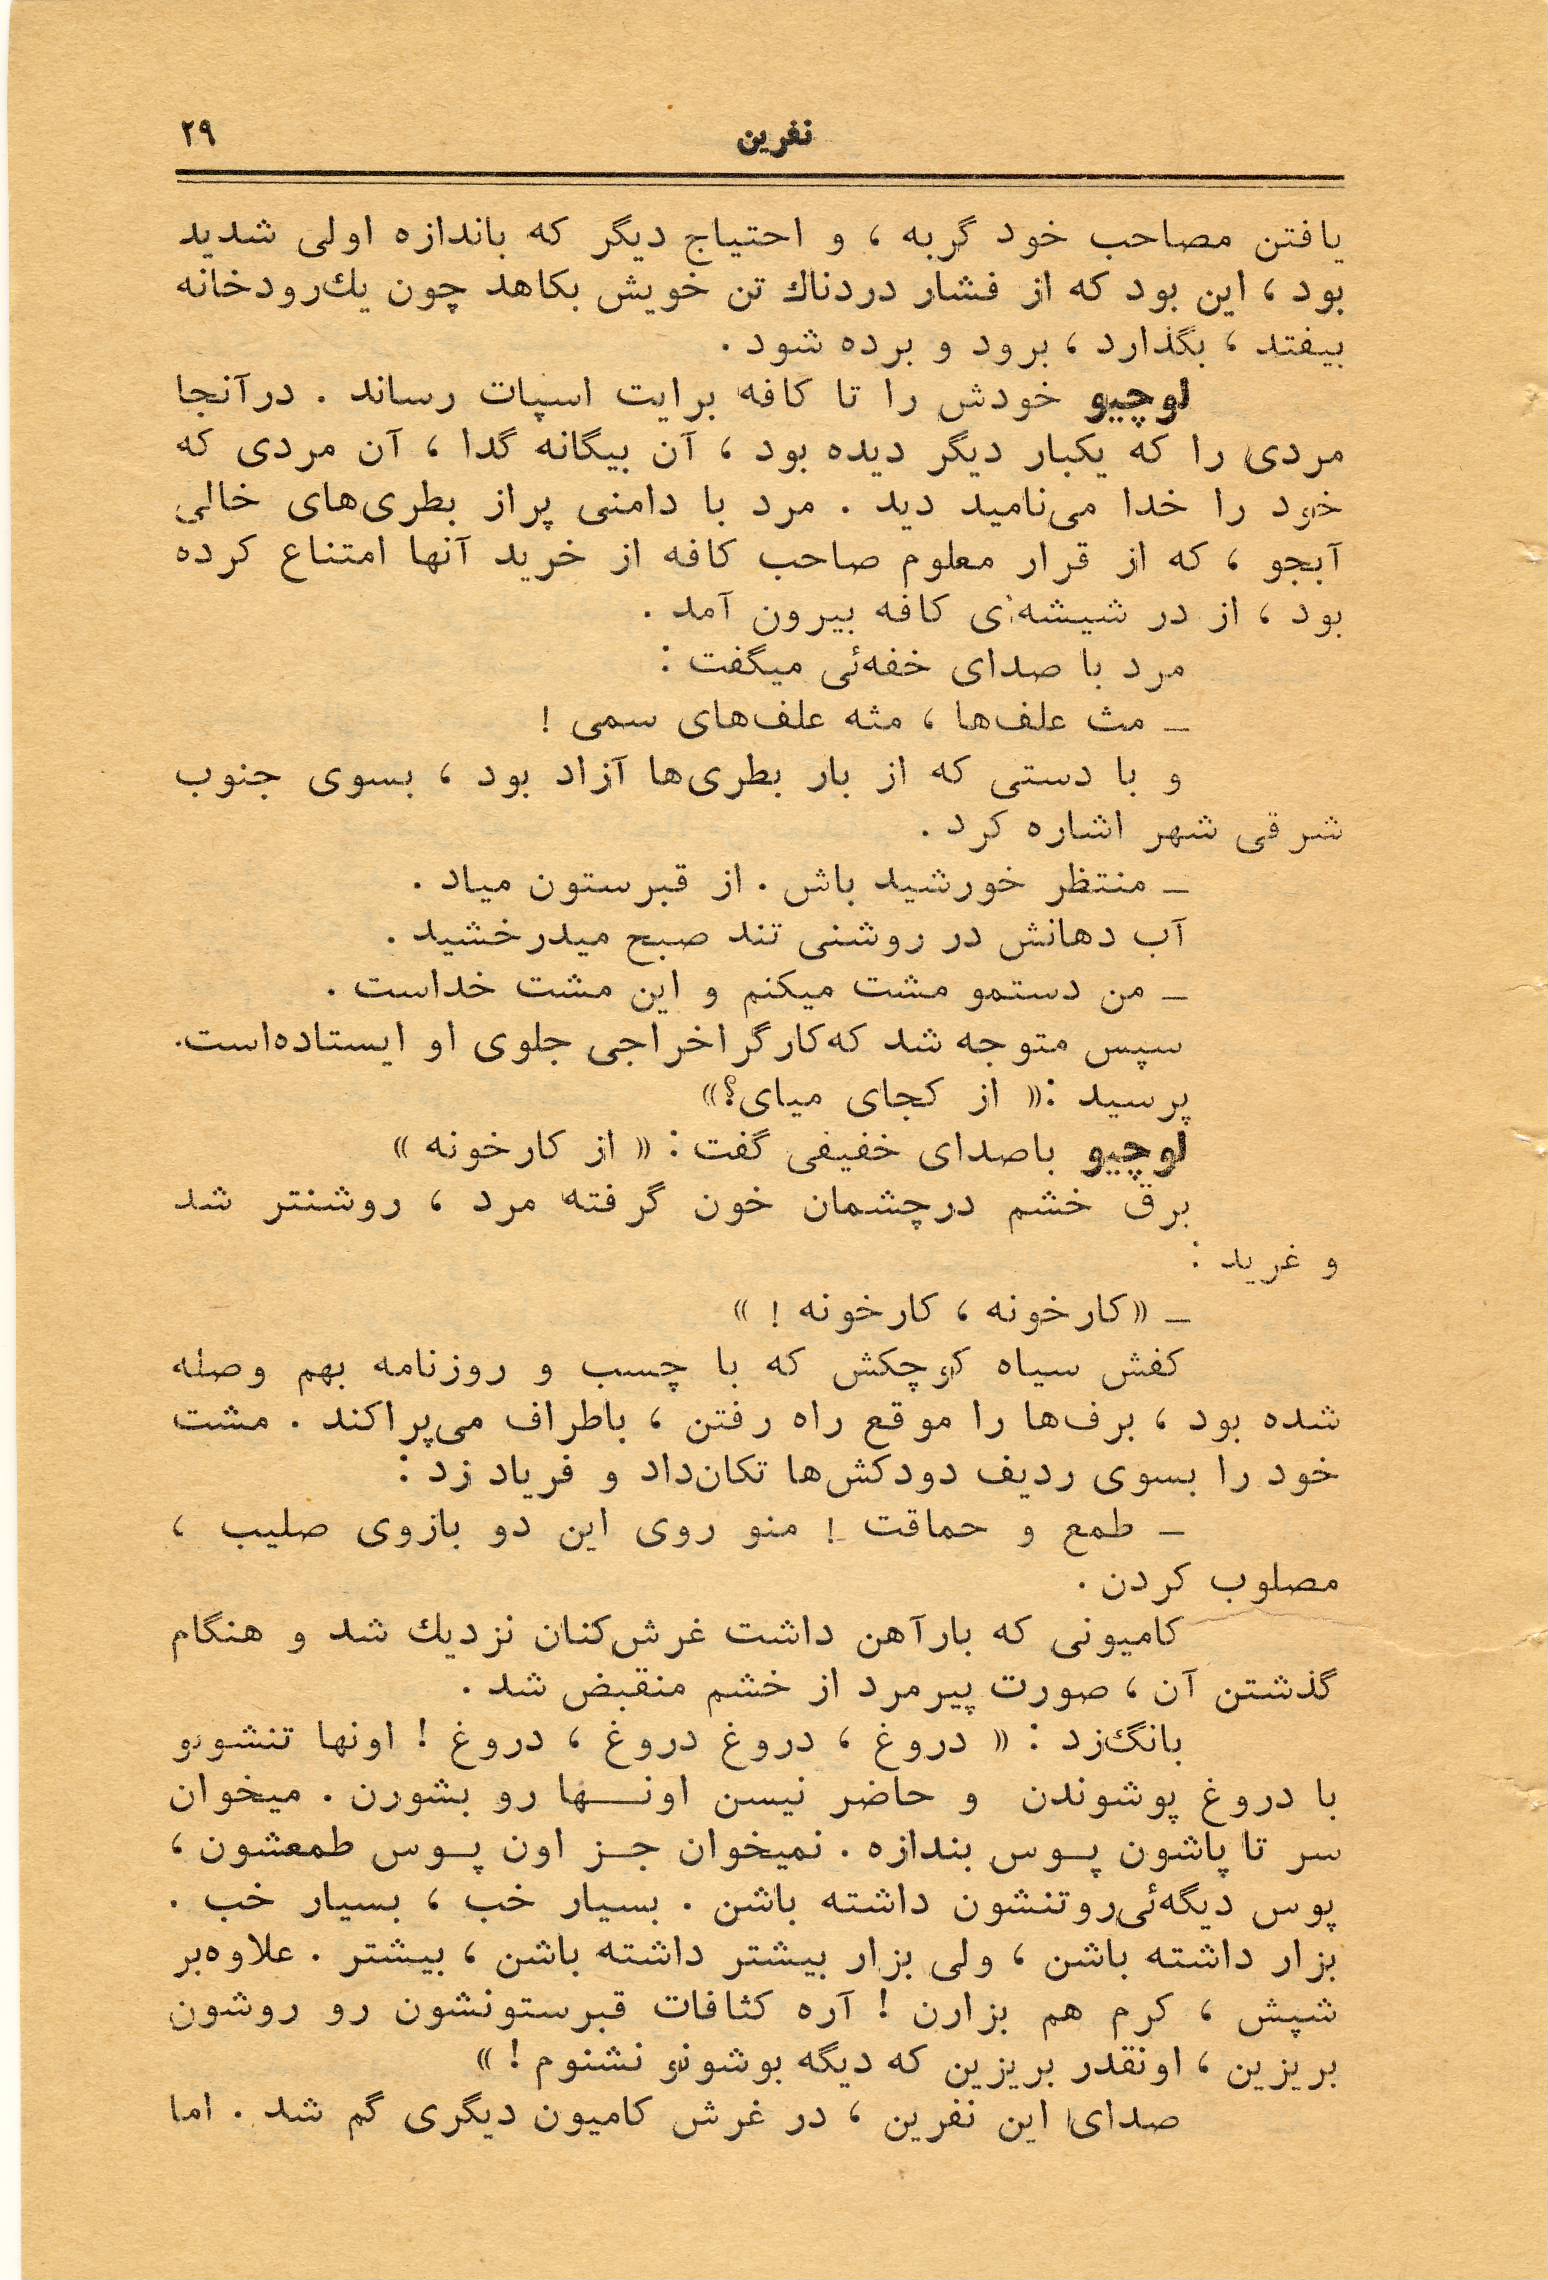 نفرین
۲۹
یافتن مصاحب خود گربه ، و احتیاج دیگر که باندازه اولی شدید
بود ، این بود که از فشار دردناك تن خویش بکاهد چون یك‌رودخانه
بیفتد ، بگذارد ، برود و برده شود .
لوچیو خودش را تا کافه برایت اسپات رساند . درآنجا
مردی را که یکبار دیگر دیده بود ، آن بیگانه گدا ، آن مردی که
خود را خدا می‌نامید دید . مرد با دامنی پراز بطری‌های خالی
آبجو ، که از قرار معلوم صاحب کافه از خرید آنها امتناع کرده
بود ، از در شیشه‌ی کافه بیرون آمد .
مرد با صدای خفه‌ئی میگفت :
ـ مث علف‌ها ، مثه علف‌های سمی !
و با دستی که از بار بطری‌ها آزاد بود ، بسوی جنوب
شرقی شهر اشاره کرد .
ـ منتظر خورشید باش . از قبرستون میاد .
آب دهانش در روشنی تند صبح میدرخشید .
ـ من دستمو مشت میکنم و این مشت خداست .
سپس متوجه شد که‌کارگراخراجی جلوی او ایستاده‌است.
پرسید :« از کجای میای؟»
لوچیو باصدای خفیفی گفت : « از کارخونه »
برق خشم درچشمان خون گرفته مرد ، روشنتر شد
و غرید :
ـ «کارخونه ، کارخونه ! »
کفش سیاه کوچکش که با چسب و روزنامه بهم وصله
شده بود ، برف‌ها را موقع راه رفتن ، باطراف می‌پراکند . مشت
خود را بسوی ردیف دودکش‌ها تکان‌داد و فریاد زد :
ـ طمع و حماقت ! منو روی این دو بازوی صلیب ،
مصلوب کردن .
کامیونی که بارآهن داشت غرش‌کنان نزدیك شد و هنگام
گذشتن آن ، صورت پیرمرد از خشم منقبض شد .
بانگ‌زد : « دروغ ، دروغ دروغ ، دروغ ! اونها تنشونو
با دروغ پوشوندن و حاضر نیسن اونـــها رو بشورن . میخوان
سر تا پاشون پـوس بندازه . نمیخوان جـز اون پـوس طمعشون ،
پوس دیگه‌ئی‌روتنشون داشته باشن . بسیار خب ، بسیار خب .
بزار داشته باشن ، ولی بزار بیشتر داشته باشن ، بیشتر . علاوه‌بر
شپش ، کرم هم بزارن ! آره کثافات قبرستونشون رو روشون
بریزین ، اونقدر بریزین که دیگه بوشونو نشنوم ! »
صدای این نفرین ، در غرش کامیون دیگری گم شد . اما